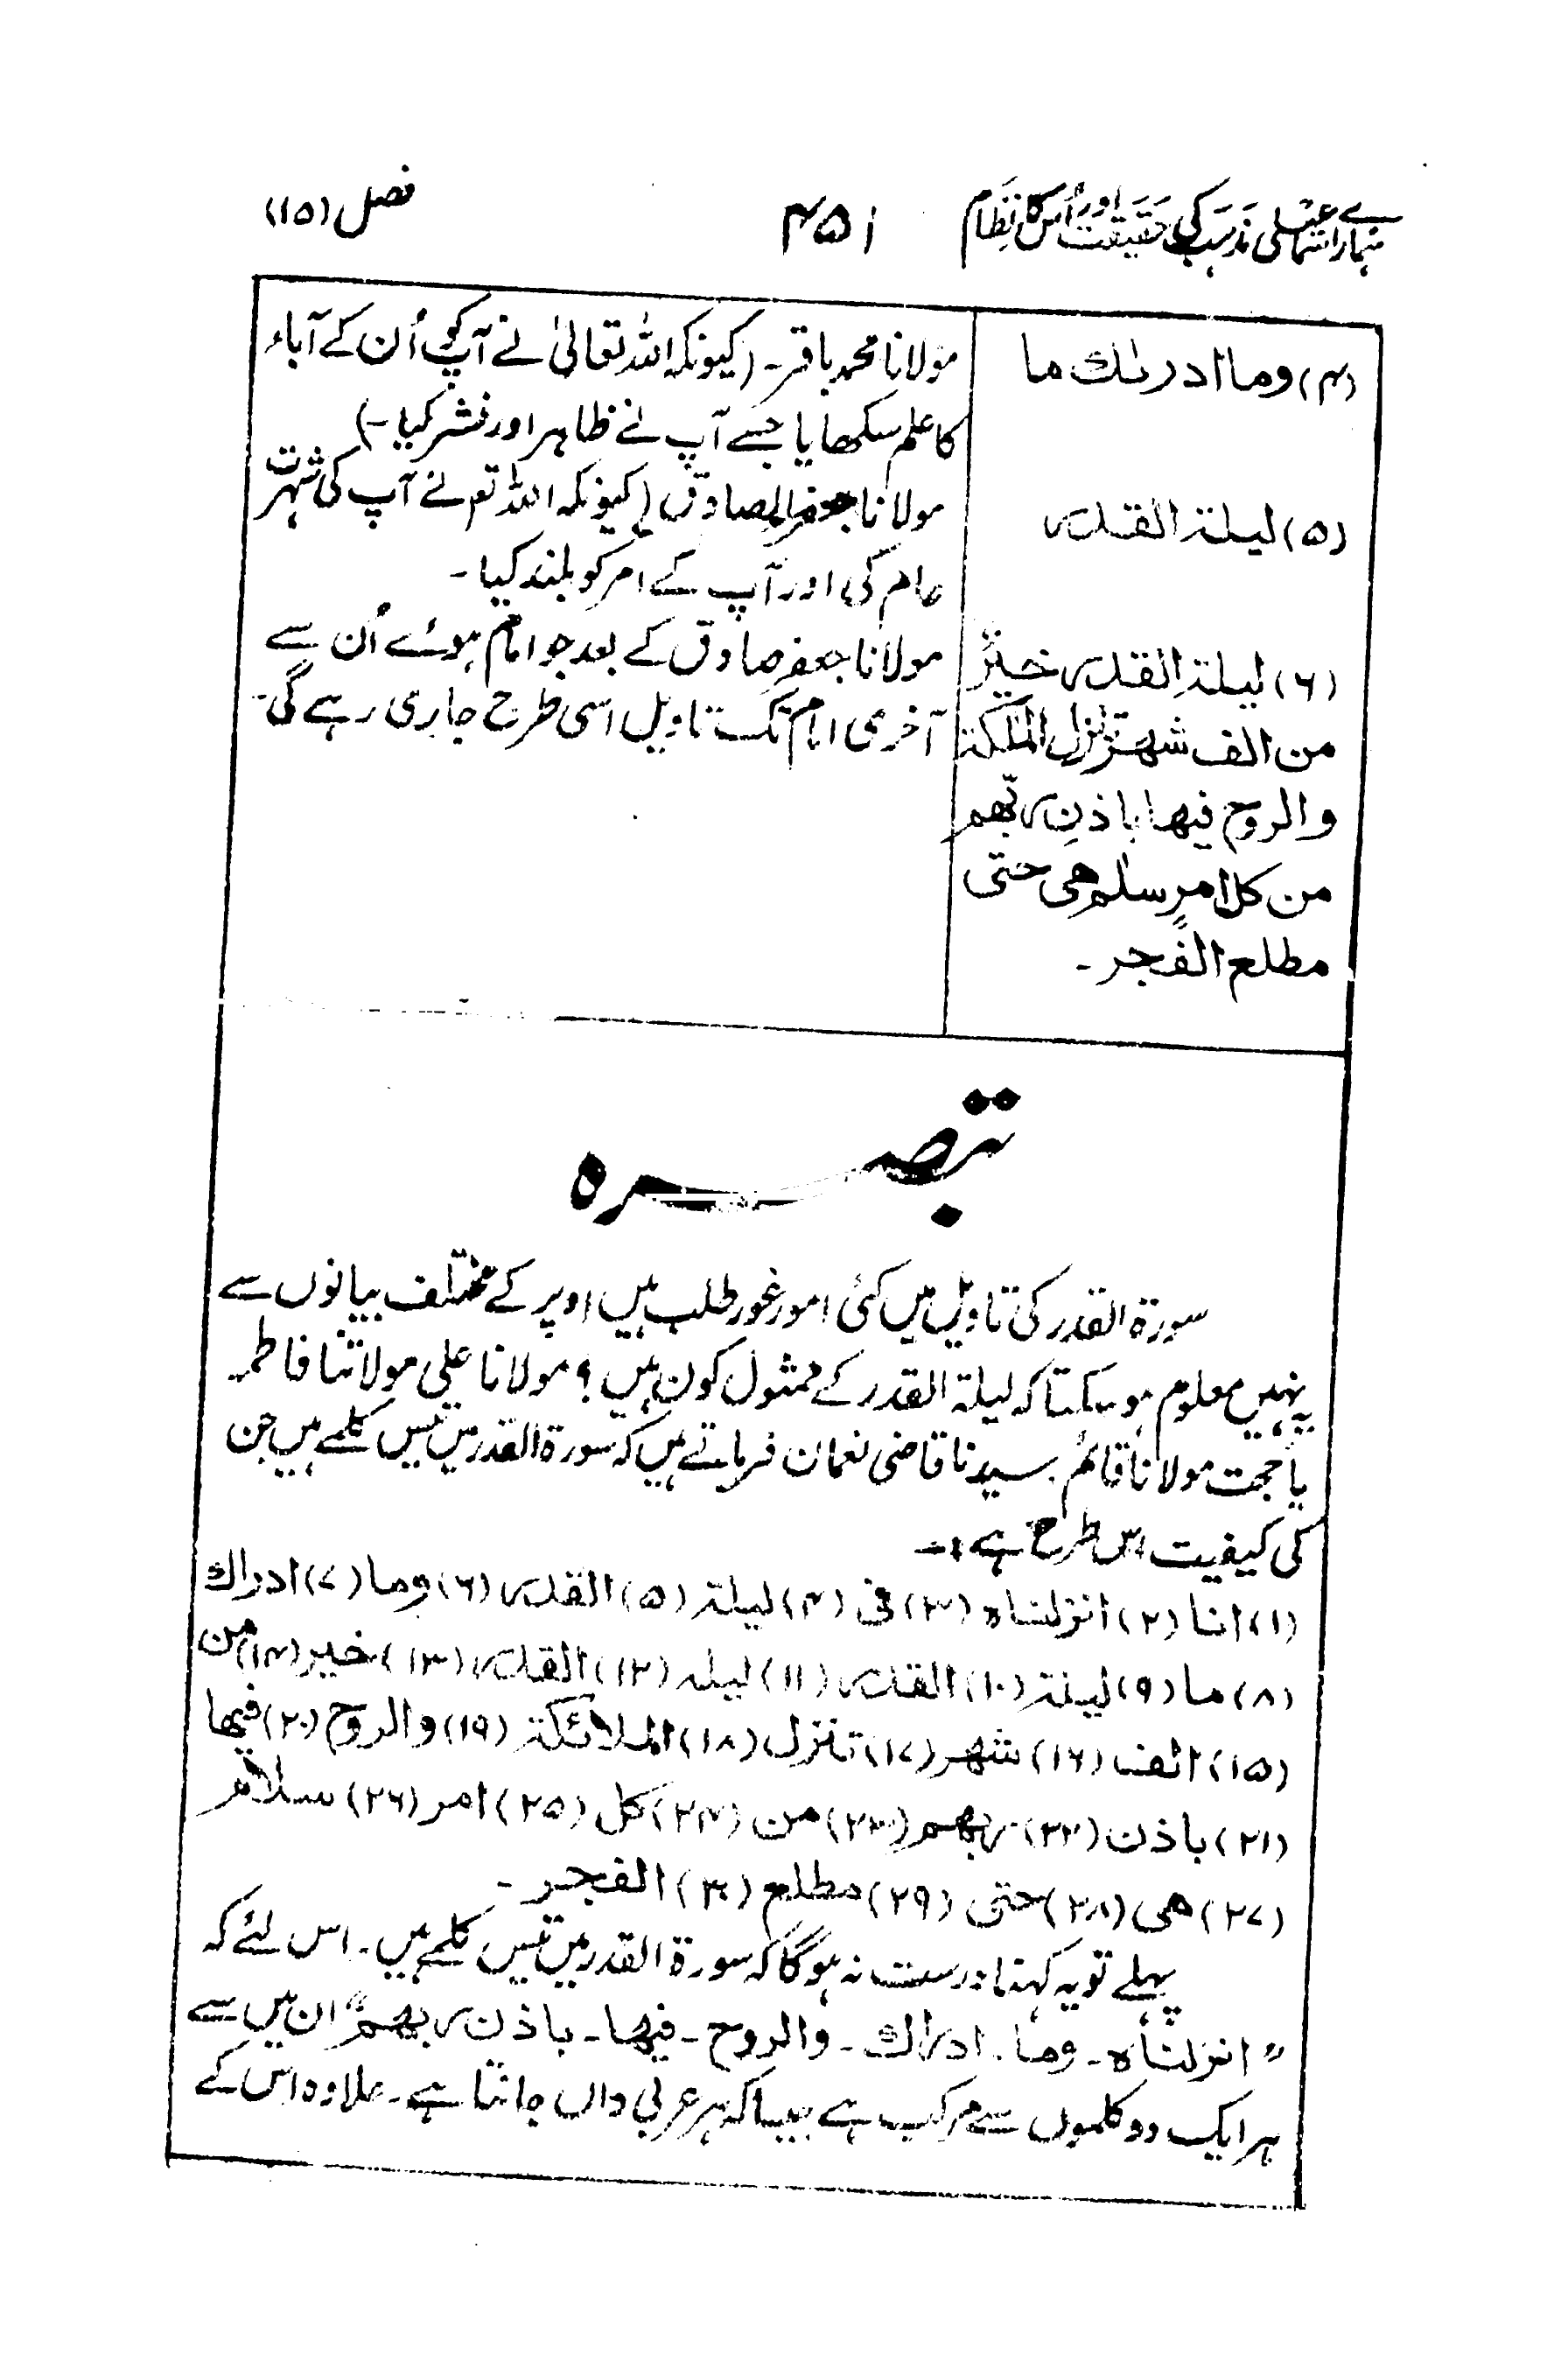 ہمارے اسماعیلی مذہب کی حقیقت اور اُس کا نظام
۴۵۱
فصل (۱۵)
(۴) وما ادرٰىك ما
مولانا محمد باقر۔ (کیونکہ اللہ تعالیٰ نے آپ کو اُن کے آباء
کا علم سکھایا جسے آپ نے ظاہر اور نشر کیا۔)
(۵) لیلۃ القدر
مولانا جعفر الصادق (کیونکہ اللہ تعہ نے آپ کی شہرت
عام کی اور آپ کے امر کو بلند کیا۔
(۶) لیلۃ القدر خیرٌ
من الف شھر تنزل الملٰئکۃ
والروح فیھا باذنِ ربّھم
من کل امرٍ سلٰم ھی حتی
مطلع الفجر۔
مولانا جعفر صادق کے بعد جو امام ہوئے اُن سے
آخری امام تک تاویل اسی طرح جاری رہے گی۔
تبصرہ
سورۃ القدر کی تاویل میں کئی امور غور طلب ہیں اوپر کے مختلف بیانوں سے
یہ نہیں معلوم ہو سکتا کہ لیلۃ القدر کے ممثول کون ہیں؟ مولانا علی مولاتنا فاطمہ
یا حجت مولانا قائم۔ سیدنا قاضی نعمان فرماتے ہیں کہ سورۃ القدر میں تیس کلمے ہیں جن
کی کیفیت اس طرح ہے:۔
(۱) انا (۲) انزلناہ (۳) فی (۴) لیلۃ (۵) القدر (۶) وما (۷) ادراك
(۸) ما (۹) لیلۃ (۱۰) القدر (۱۱) لیلہ (۱۲) القدر (۱۳) خیر (۱۴) من
(۱۵) الف (۱۶) شھر (۱۷) تنزل (۱۸) الملائکۃ (۱۹) والروح (۲۰) فیھا
(۲۱) باذن (۲۲) ربھم (۲۳) من (۲۴) کل (۲۵) امر (۲۶) سلام
(۲۷) ھی (۲۸) حتی (۲۹) مطلع (۳۰) الفجر۔
پہلے تو یہ کہنا درست نہ ہوگا کہ سورۃ القدر میں تیس کلمے ہیں۔ اس لئے کہ
"انزلناہ۔ وما۔ ادراك۔ والروح۔ فیھا۔ باذن ربھم" ان میں سے
ہر ایک دو کلموں سے مرکب ہے جیسا کہ ہر عربی داں جانتا ہے۔ علاوہ اس کے